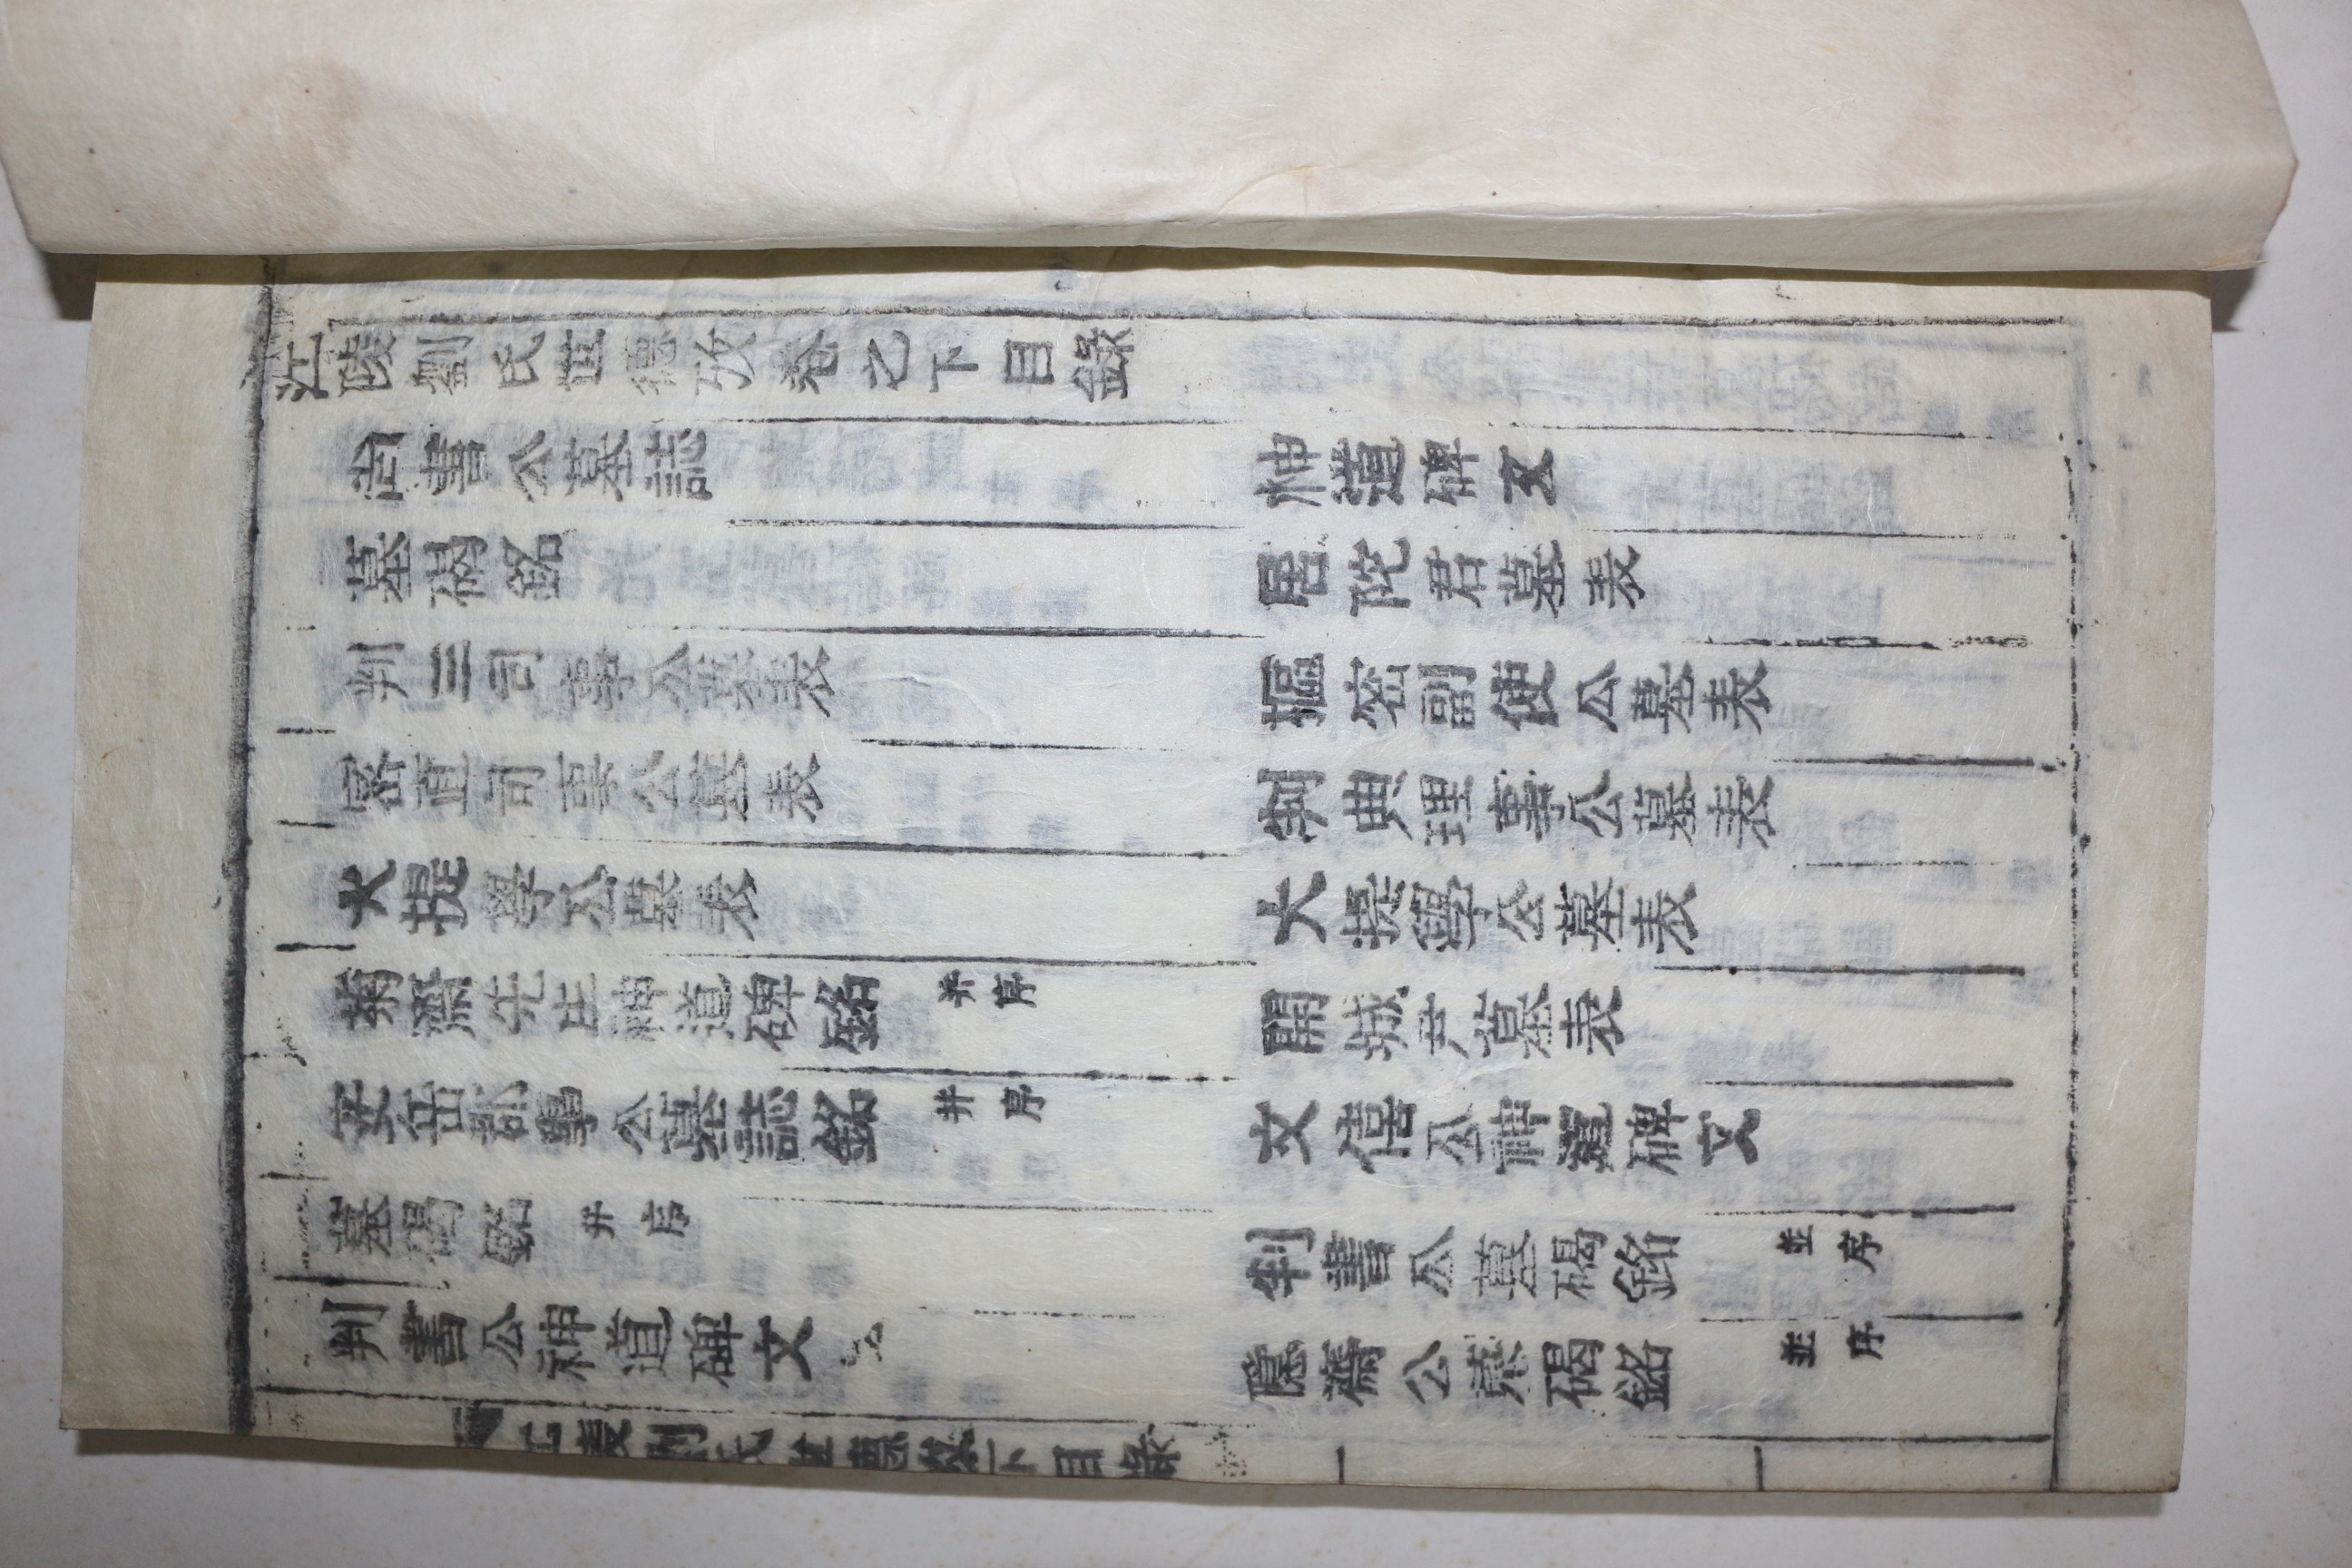 江陵劉氏世德攷卷之下目錄
尚書公墓誌 神道碑文
墓碣銘 居陀君墓表
判三司事公墓表 樞密副使公墓表
密直司事公墓表 判典理事公墓表
大提學公墓表 大提學公墓表
菊齋先生神道碑銘 并序 開城尹墓表
安岳郡事公墓誌銘 并序 文僖公神道碑文
墓碣銘 并序 判書公墓碣銘 並序
判書公神道碑文 隱齋公墓碣銘 並序
江陵劉氏世德攷下目錄 一